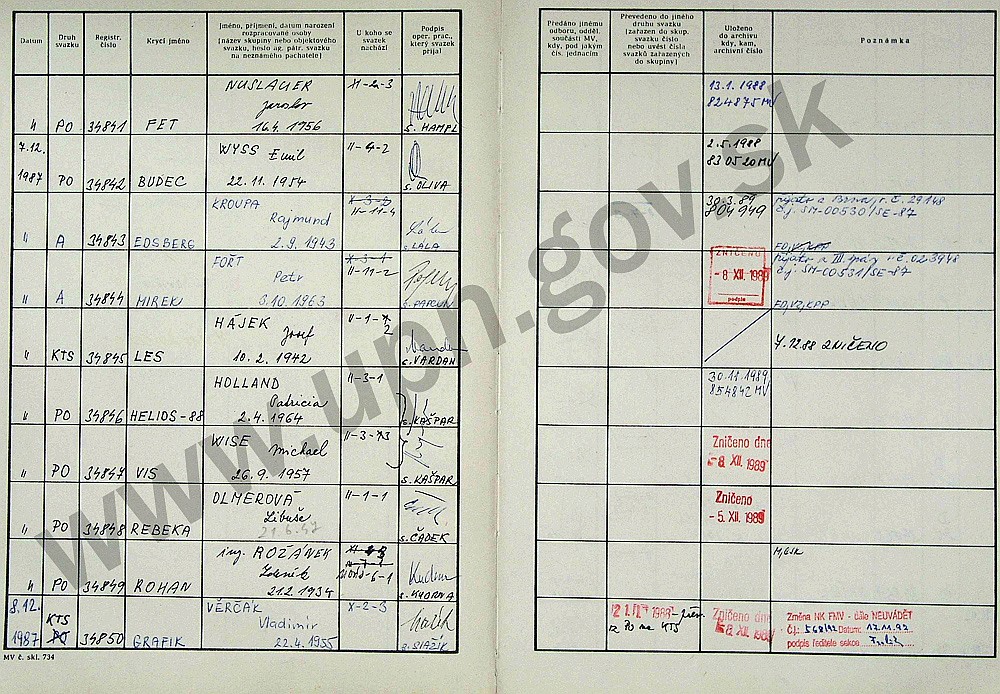 Datum
Druh svazku
Registr. číslo
Krycí jméno
Jméno, příjmení, datum narození
rozpracované osoby
(název skupiny nebo objektového
svazku, heslo ag. pátr. svazku
na neznámého pachatele)
U koho se
svazek
nachází
Podpis
oper. prac.,
který svazek
přijal
Předáno jinému
odboru, odděl.
součásti MV,
kdy, pod jakým
čís. jednacím
Převedeno do jiného
druhu svazku
(zařazen do skup.
svazku číslo
nebo uvést čísla
svazků zařazených
do skupiny)
Uloženo
do archivu
kdy, kam,
archivní číslo
Poznámka
NUSLAUER
Jaroslav
16.4. 1956
" PO 34841 FET
XI-2-3
s. HAMPL
13.1. 1988
824875 MV
7.12.
1987 PO 34842 BUDEC
WYSS Emil
22.11. 1954
II-4-2
s. OLIVA
2.5. 1988
830520 MV
" A 34843 EDSBERG
KROUPA
Rajmund
2.9. 1943
X-3-3
II-11-4
s. LÁLA
30.3.89
804949
č.j. SM-00530/SE-87
" A 34844 MIREK
FOŘT
Petr
3.10. 1963
X-3-1
II-11-2
ZNIČENO
-8 XII. 1989
podpis
č.j. SM-00531/SE-87
FO,VZ,KPP
" KTS 34845 LES
HÁJEK Josef
10.2. 1942
II-1-
2
s. VARDAN
7.12.88 ZNIČENO
" PO 34846 HELIOS-88
HOLLAND
Patricia
2.4. 1964
II-3-1
s. KAŠPAR
30.11.1989
854842 MV
" PO 34847 VIS
WISE Michael
26.9. 1957
II-3-3
s. KAŠPAR
Zničeno dne
-8. XII. 1989
" PO 34848 REBEKA
OLMEROVÁ
Libuše
21.6.47
II-1-1
s. ČADEK
Zničeno
-5. XII. 1989
" PO 34849 ROHAN
ing. ROŽÁNEK
Zdeněk
21.2. 1934
8.12.
1987 KTS PO 34850 GRAFIK
VĚRČÁK
Vladimír
22.4. 1955
X-2-3
z PO na KTS
Zničeno dne
-8. XII. 1989
Změna NK FMV - číslo NEUVÁDĚT
Č.j.: 568/92 Datum: 17.11.92
podpis ředitele sekce
MV č. skl. 734
www.upn.gov.sk